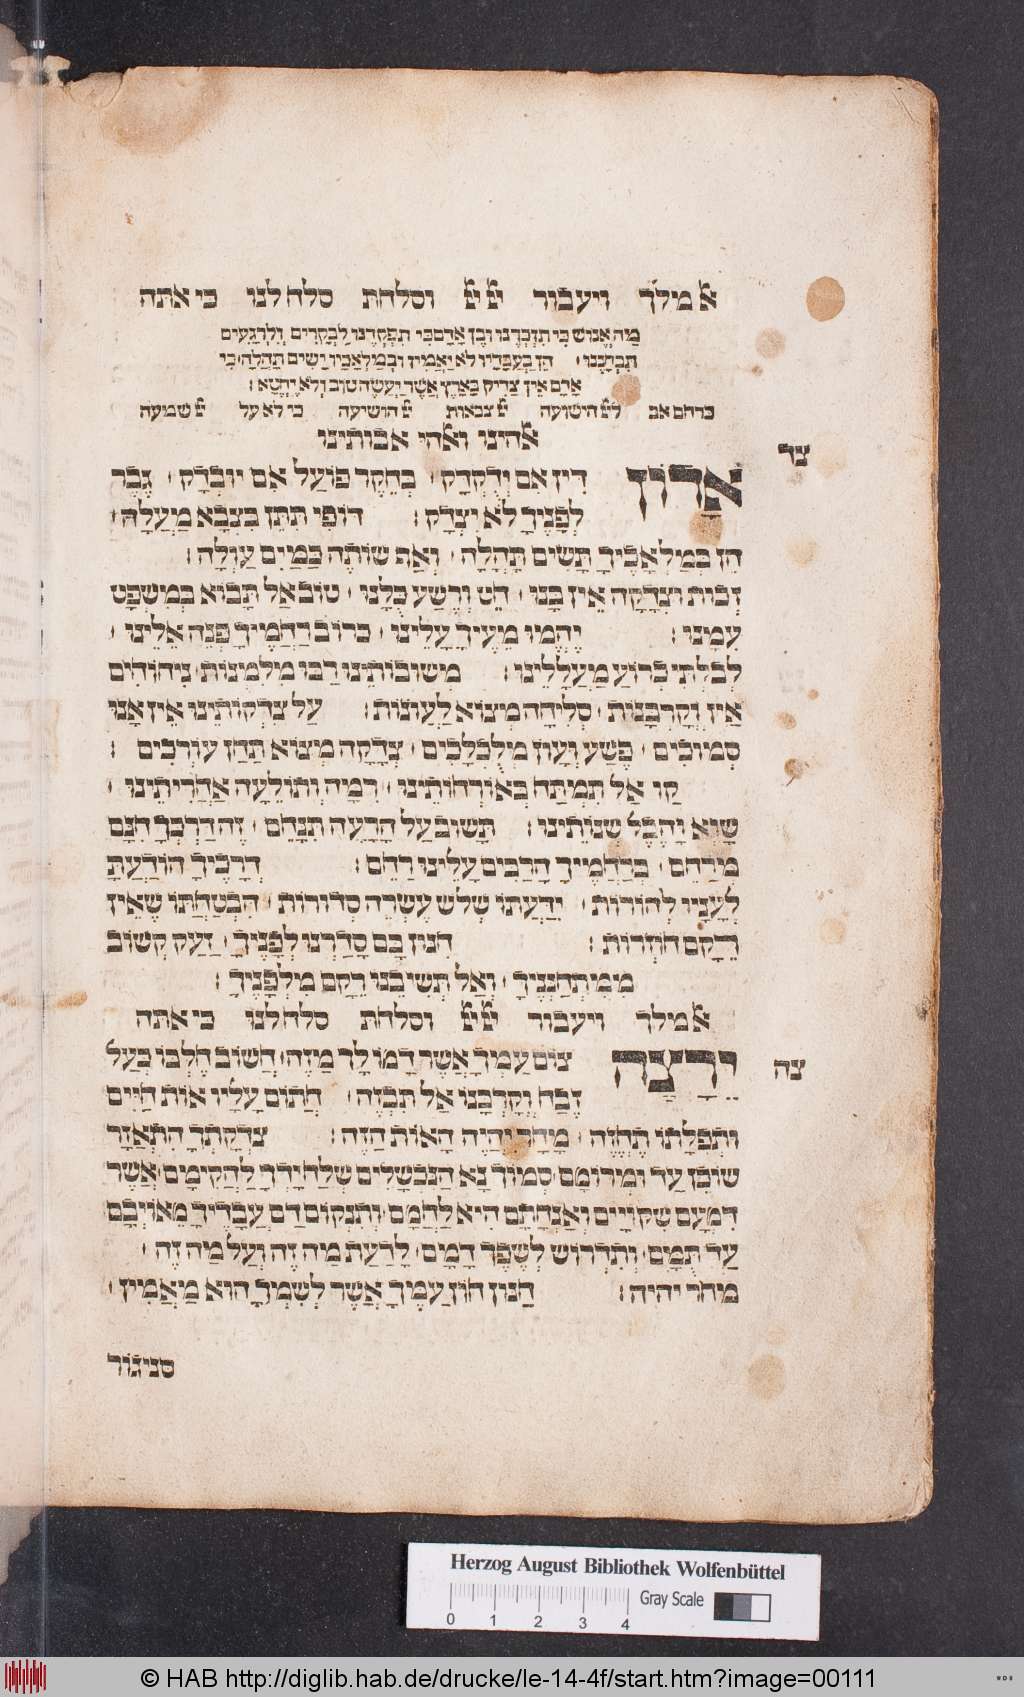 אֿ מלך ויעבור יֿיֿ יֿיֿ וסלחת סלח לנו כי אתה
מָה אֱנוֹשׁ כִּי תִזְכְּרֶנּוּ וּבֶן אָדָם כִּי תִפְקְדֶנּוּ לִבְקָרִים וְלִרְגָעִים
תִבְחָנֶנּוּ׃ הֵן בַּעֲבָדָיו לֹא יַאֲמִין וּבְמַלְאָכָיו יָשִׂים תָּהֳלָה׃ כִּי
אָדָם אֵין צַדִּיק בָּאָרֶץ אֲשֶׁר יַעֲשֶׂה טוֹב וְלֹא יֶחֱטָא׃
כרחם אב ליֿיֿ הישועה יֿיֿ צבאות יֿיֿ הושיעה כי לא על יֿיֿ שמעה
אֿהינו ואֿהי אבותינו
צד
אָדוֹן דִין אִם יְדֻקְדָק׳ בְּחֵקֶר פּוֹעַל אִם יוּבְדָק׳ גֶּבֶר
לְפָנֶיךָ לֹא יִצְדָק׃ דוֹפִי תִתֵּן בִּצְבָא מַעְלָה׳
הֵן בְּמַלְאָכֶיךָ תָּשִׂים תָּהֳלָה׳ וְאַף שׁוֹתֶה כַּמַּיִם עַוְלָה׃
זְכוּת וּצְדָקָה אֵין בָּנוּ׳ חֵט וְרֶשַׁע כֻּלָּנוּ׳ טוֹב אַל תָּבוֹא בְּמִשְׁפָּט
עִמָּנוּ׃ יֶהֱמוּ מֵעֶיךָ עָלֵינוּ׳ כְּרוֹב רַחֲמֶיךָ פְּנֵה אֵלֵינוּ׳
לְבִלְתִּי כְּרוֹעַ מַעֲלָלֵינוּ׃ מְשׁוּבוֹתֵינוּ רַבּוּ מִלִּמְנוֹת׳ נִיחוֹחִים
אַיִן וְקָרְבָּנוֹת׳ סְלִיחָה מְצוֹא לַעֲוֹנוֹת׃ עַל צִדְקוֹתֵינוּ אֵין אָנוּ
סְמוּכִים׳ פֶּשַׁע וְעָוֹן מְלֻכְלָכִים׳ צְדָקָה מְצוֹא תַּחַן עוֹרְכִים׃
קַו אַל תִּמְתַּח בְּאוֹרְחוֹתֵינוּ׳ רִמָּה וְתוֹלֵעָה אַחֲרִיתֵינוּ׳
שָׁוְא וָהֶבֶל שְׁנוֹתֵינוּ׃ תָּשׁוּב עַל הָרָעָה תִּנָּחֵם׳ זֶה דַּרְכְּךָ חִנָּם
מְרַחֵם׳ בְּרַחֲמֶיךָ הָרַבִּים עָלֵינוּ רַחֵם׃ דְּרָכֶיךָ הוֹדַעְתָּ
לְעָנָיו לְהוֹרוֹת׳ יְדַעְתּוֹ שְׁלֹשׁ עֶשְׂרֵה סְדוּרוֹת׳ הִבְטַחְתּוֹ שֶׁאֵין
רֵיקָם חוֹזְרוֹת׃ חִנּוּן בָּם סָדַרְנוּ לְפָנֶיךָ׳ זַעַק קְשׁוֹב
מִמִּתְחַנְּנֶיךָ׳ וְאַל תְּשִׁיבֵנוּ רֵקָם מִלְּפָנֶיךָ׃
אֿ מלך ויעבור יֿיֿ יֿיֿ וסלחת סלח לנו כי אתה
צה
יֵרָצֶה צוֹם עַמְּךָ אֲשֶׁר דָּמוּ לָךְ מִזֶּה׳ חֲשׁוֹב חֶלְבּוֹ כְּעַל
זֶבַח וְקָרְבָּנוֹ אַל תִּבְזֶה׳ חָתוֹם עָלָיו אוֹת חַיִּים
וּתְפִלָּתוֹ תֶחֱזֶה׳ מָחָר יִהְיֶה הָאוֹת הַזֶּה׃ צִדְקָתְךָ הִתְאַזָּר
שׁוֹכֵן עַד וּמְרוֹמָם׳ סְמוֹךְ נָא הַנִּכְשָׁלִים שְׁלַח יָדְךָ לַהֲקִימָם׳ אֲשֶׁר
דִּמְעָם שִׁקּוּיִים וְאַנְחָתָם הִיא לַחְמָם׳ וְתִנְקוֹם דַּם עֲבָדֶיךָ מֵאוֹיְבָם
עַד תֻּמָּם׳ וְתִדְרוֹשׁ לְשֹׁפֵךְ דָּמָם׳ לָדַעַת מַה זֶה וְעַל מַה זֶה׳
מחר יהיה׃ חַנּוּן חוֹן עַמֶּךָ אֲשֶׁר לְשִׁמְךָ הוּא מַאֲמִין׳
סניגור
Herzog August Bibliothek Wolfenbüttel
0 1 2 3 4 Gray Scale
© HAB http://diglib.hab.de/drucke/le-14-4f/start.htm?image=00111